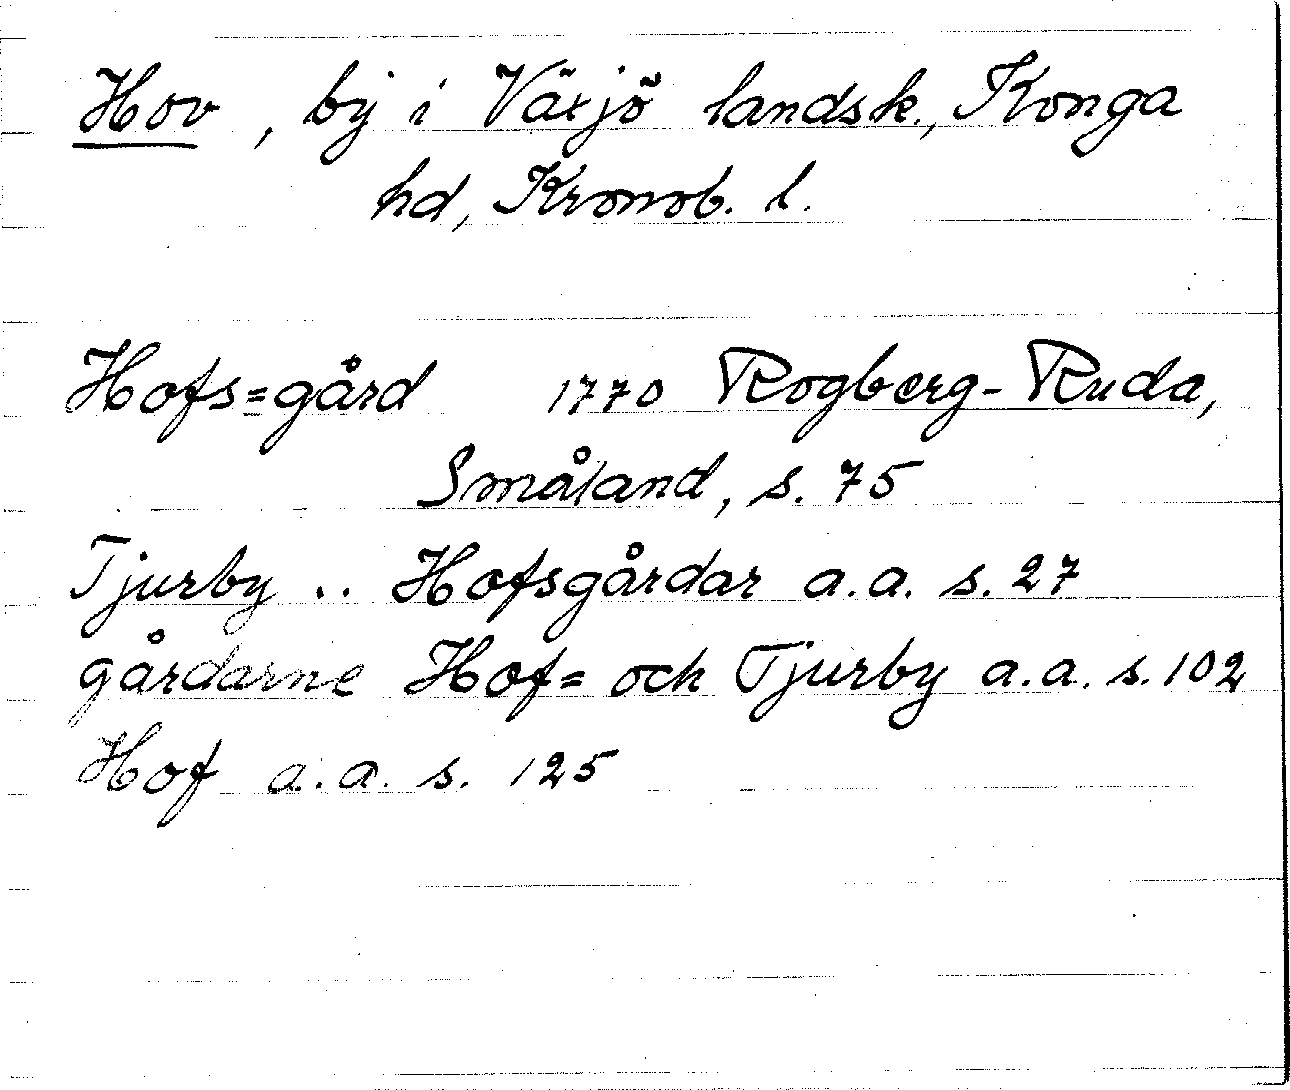 Hov, by i Växjö landsk., Konga
hd, Kronob. l.
Hofs=gård 1770 Rogberg-Ruda,
Småland, s. 75
Tjurby .. Hofsgårdar a.a. s. 27
gårdarne Hof= och Tjurby a.a. s. 102
Hof a.a. s. 125